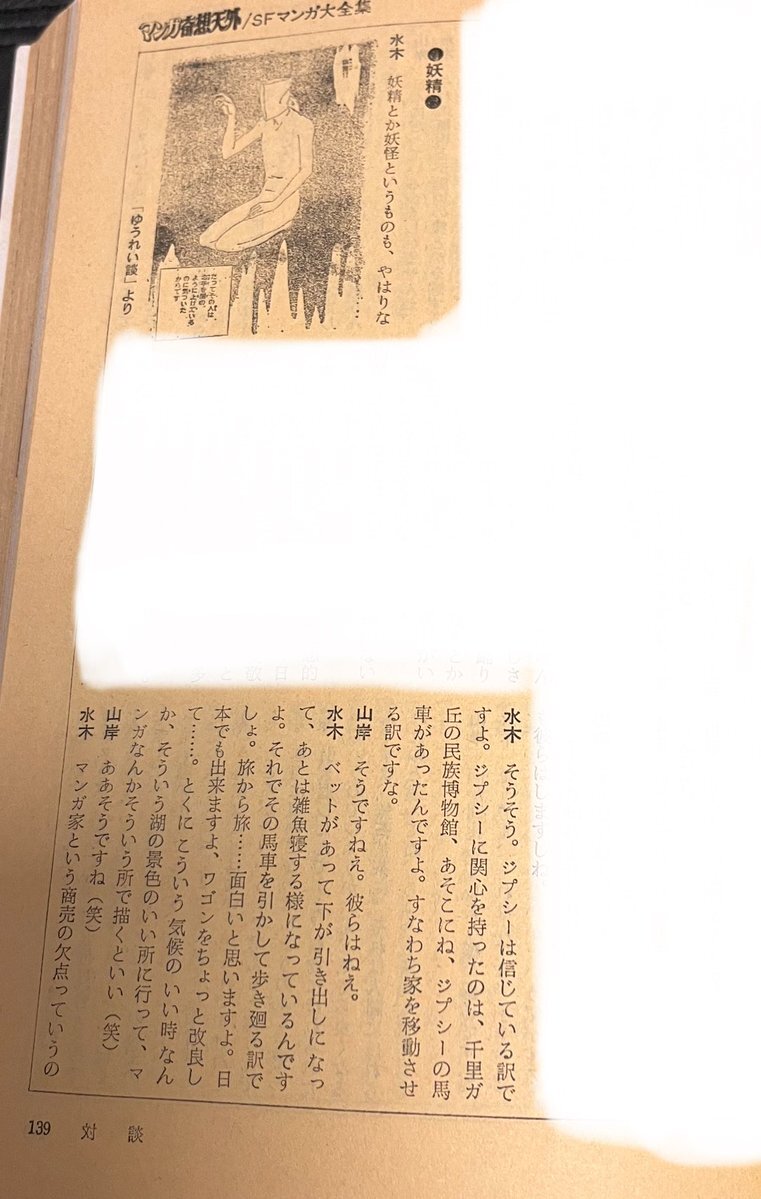 マンガ奇想天外/SFマンガ大全集
●妖精●
水木　妖精とか妖怪というものも、やはりな
だってその人は、
ように上げている
のに気づいた
からです
「ゆうれい談」より
水木　そうそう。ジプシーは信じている訳で
すよ。ジプシーに関心を持ったのは、千里ガ
丘の民族博物館、あそこにね、ジプシーの馬
車があったんですよ。すなわち家を移動させ
る訳ですな。
山岸　そうですねえ。彼らはねえ。
水木　ベットがあって下が引き出しになっ
て、あとは雑魚寝する様になっているんです
よ。それでその馬車を引かして歩き廻る訳で
しょ。旅から旅……面白いと思いますよ。日
本でも出来ますよ、ワゴンをちょっと改良し
て……。とくにこういう気候のいい時なん
か、そういう湖の景色のいい所に行って、マ
ンガなんかそういう所で描くといい（笑）
山岸　ああそうですね（笑）
水木　マンガ家という商売の欠点っていうの
139　対　談